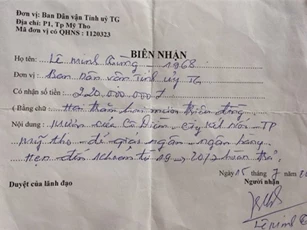 Đơn vị: Ban Dân vận Tỉnh uỷ TG
Địa chỉ: P1, Tp Mỹ Tho
Mã đơn vị có QHNS : 1120323
BIÊN NHẬN
Họ tên: Lê Minh Hùng - 1968
Đơn vị: Ban Dân vận Tỉnh ủy TG
Có nhận số tiền: 220.000.000 đ
(Bằng chữ: Hai trăm hai mươi triệu đồng
Nội dung: Mượn của Cô Diễm - TP
Mỹ Tho - để giao ngân hàng
Hẹn đến 20/2 hoàn trả
Ngày 15 7
Duyệt của lãnh đạo
Người nhận
Lê Minh